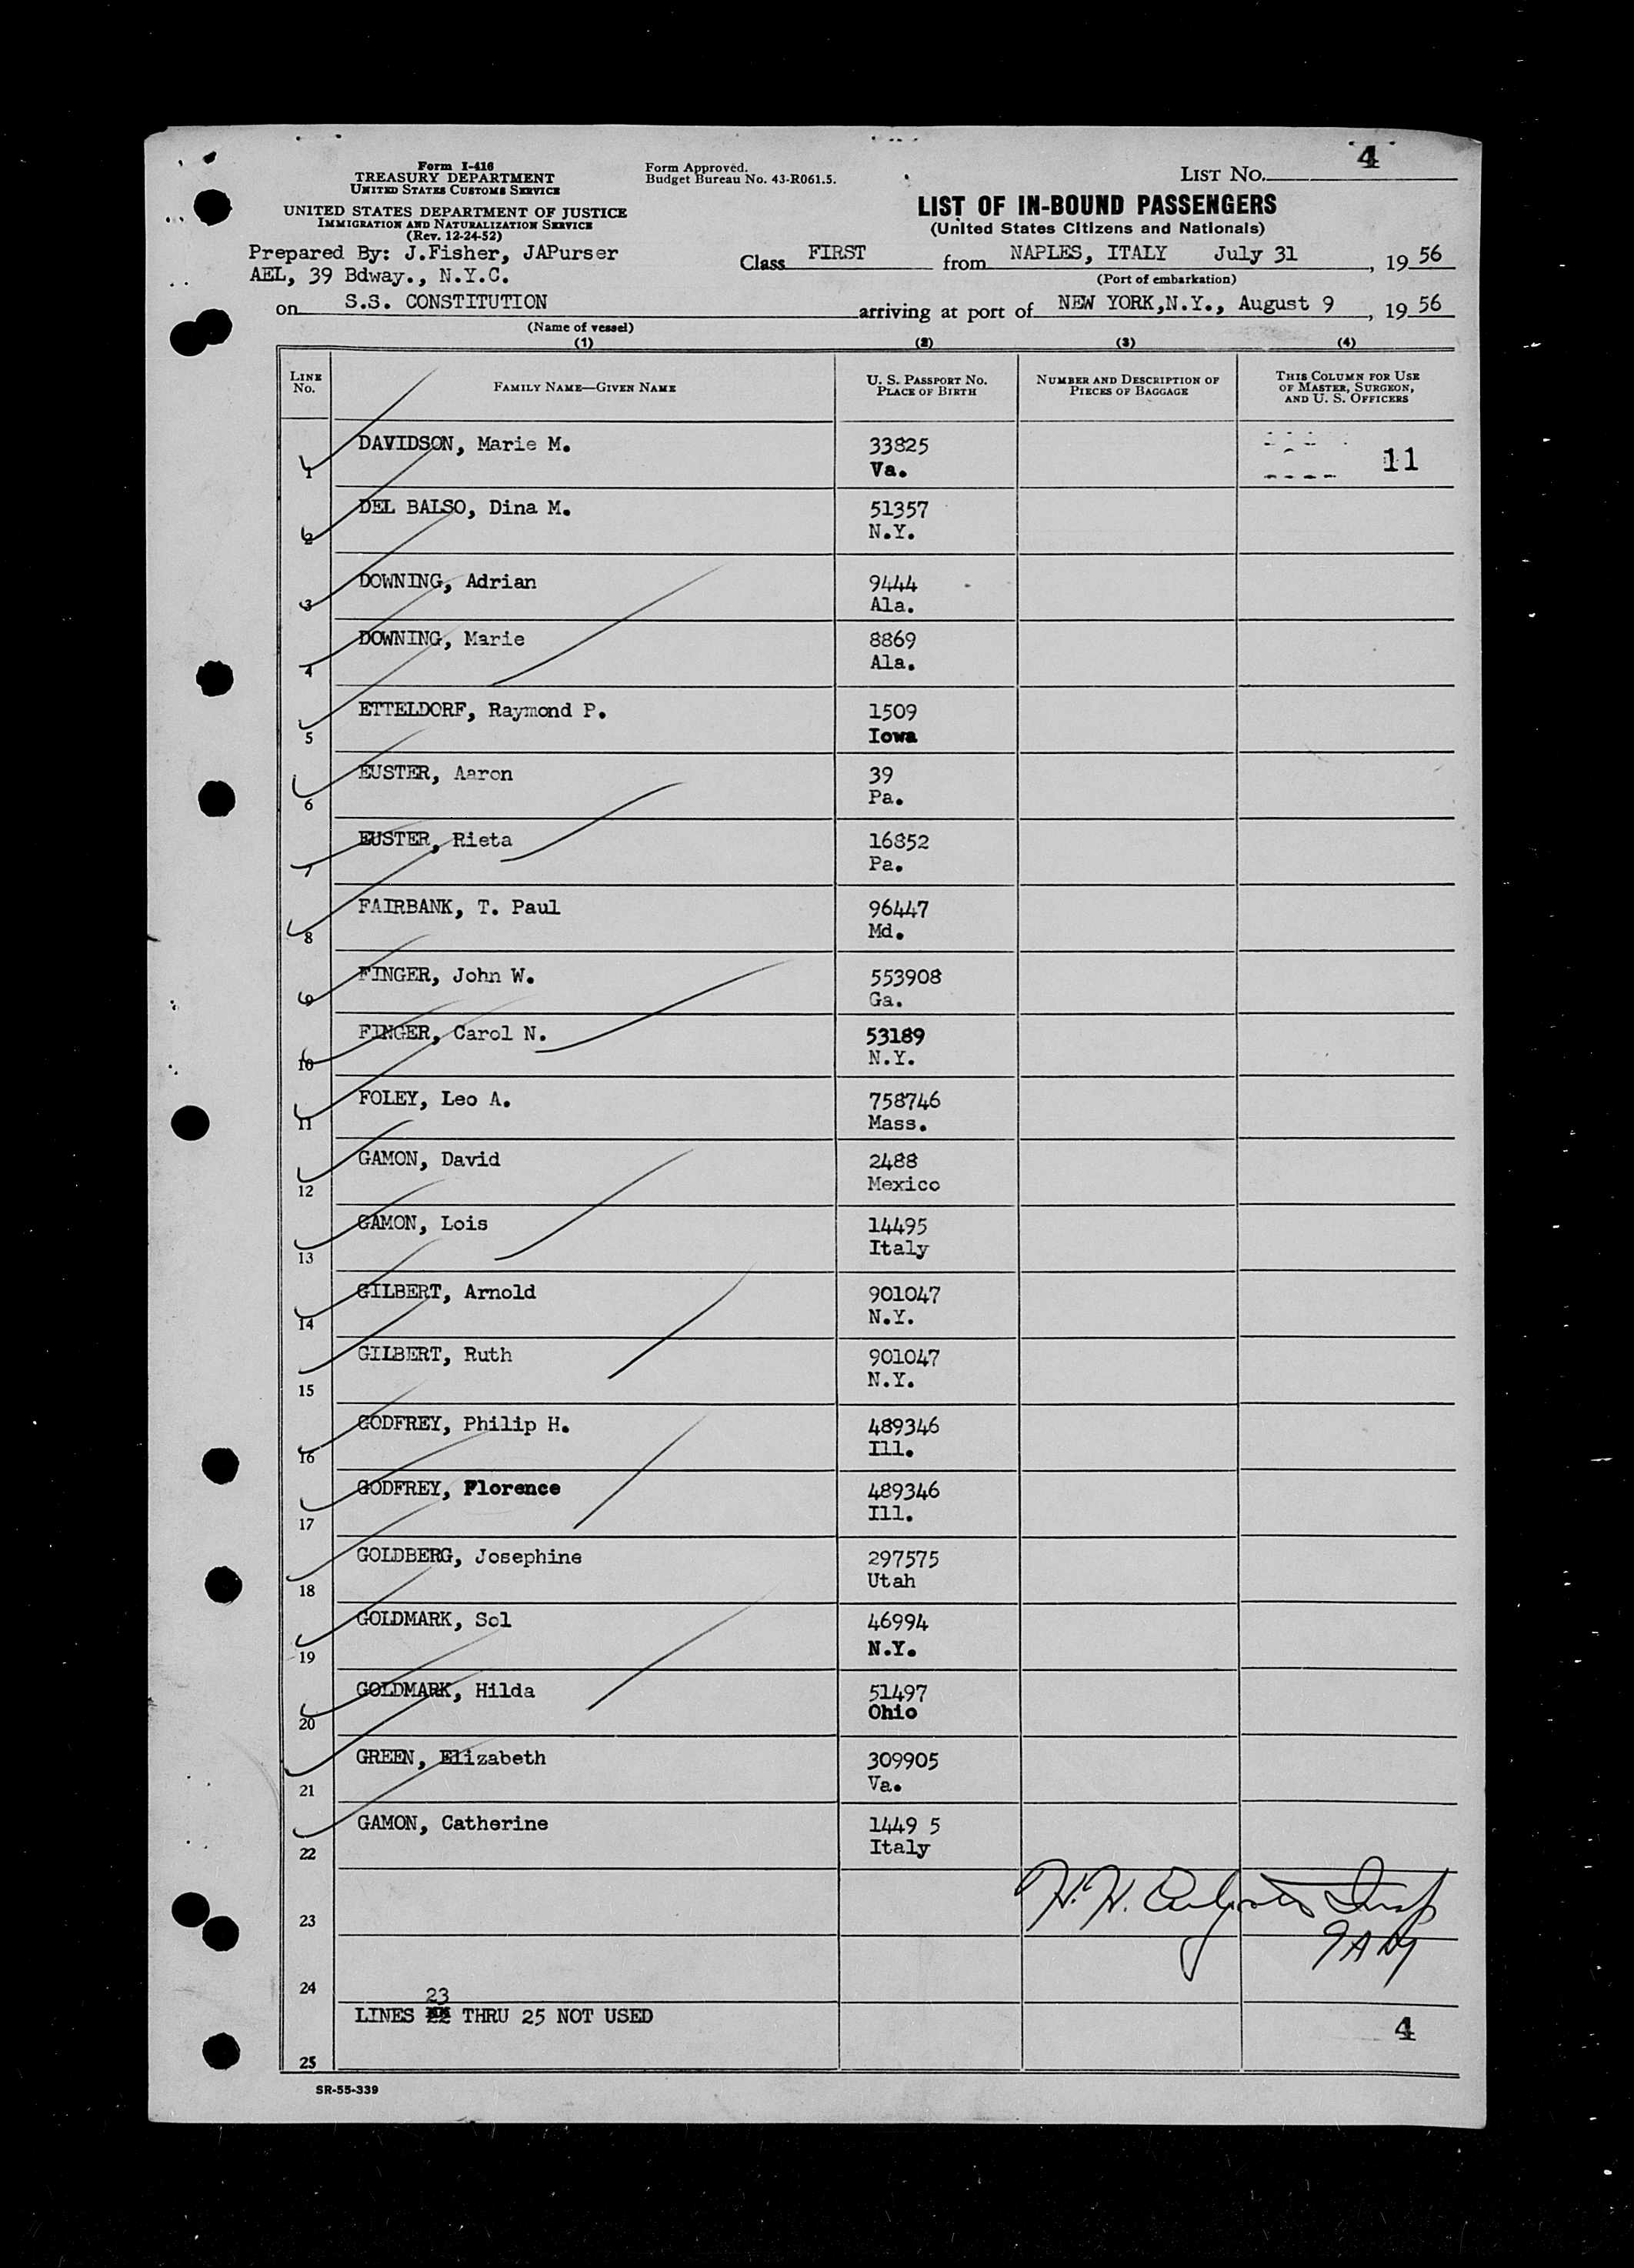 4
Form I-416
TREASURY DEPARTMENT
UNITED STATES CUSTOMS SERVICE
UNITED STATES DEPARTMENT OF JUSTICE
IMMIGRATION AND NATURALIZATION SERVICE
(Rev. 12-24-52)
Form Approved.
Budget Bureau No. 43-R061.5.
LIST NO.
LIST OF IN-BOUND PASSENGERS
(United States Citizens and Nationals)
Prepared By: J.Fisher, JAPurser
AEL, 39 Bdway., N.Y.C.
Class FIRST from NAPLES, ITALY July 31, 19 56
(Port of embarkation)
on S.S. CONSTITUTION arriving at port of NEW YORK,N.Y., August 9, 19 56
(Name of vessel)
(1) (2) (3) (4)
LINE No. FAMILY NAME—GIVEN NAME U. S. PASSPORT NO. PLACE OF BIRTH NUMBER AND DESCRIPTION OF PIECES OF BAGGAGE THIS COLUMN FOR USE OF MASTER, SURGEON, AND U. S. OFFICERS
1 DAVIDSON, Marie M. 33825 Va. 11
2 DEL BALSO, Dina M. 51357 N.Y.
3 DOWNING, Adrian 9444 Ala.
4 DOWNING, Marie 8869 Ala.
5 ETTELDORF, Raymond P. 1509 Iowa
6 EUSTER, Aaron 39 Pa.
7 EUSTER, Rieta 16852 Pa.
8 FAIRBANK, T. Paul 96447 Md.
9 FINGER, John W. 553908 Ga.
10 FINGER, Carol N. 53189 N.Y.
11 FOLEY, Leo A. 758746 Mass.
12 GAMON, David 2488 Mexico
13 GAMON, Lois 14495 Italy
14 GILBERT, Arnold 901047 N.Y.
15 GILBERT, Ruth 901047 N.Y.
16 GODFREY, Philip H. 489346 Ill.
17 GODFREY, Florence 489346 Ill.
18 GOLDBERG, Josephine 297575 Utah
19 GOLDMARK, Sol 46994 N.Y.
20 GOLDMARK, Hilda 51497 Ohio
21 GREEN, Elizabeth 309905 Va.
22 GAMON, Catherine 1449 5 Italy
23
24
23
LINES THRU 25 NOT USED
4
25
SR-55-339